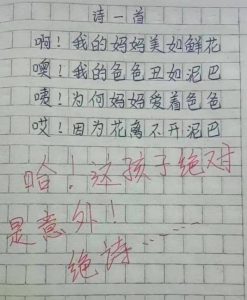 诗一首
啊！我的妈妈美如鲜花
噢！我的爸爸丑如泥巴
咦！为何妈妈爱着爸爸
哎！因为花离不开泥巴
哈！这孩子绝对
是意外！
绝诗……